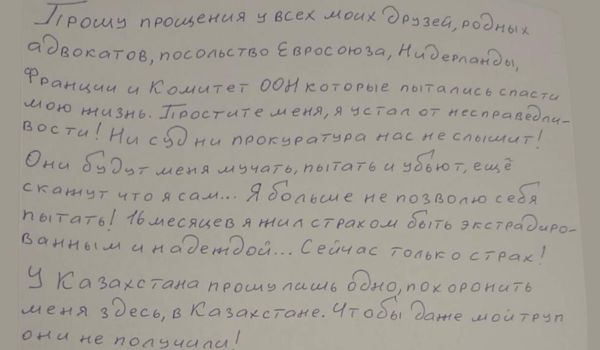 Прошу прощения у всех моих друзей, родных
адвокатов, посольство Евросоюза, Нидерланды,
Франции и Комитет ООН которые пытались спасти
мою жизнь. Простите меня, я устал от несправедли-
вости! Ни суд ни прокуратура нас не слышит!
Они будут меня мучать, пытать и убьют, ещё
скажут что я сам... Я больше не позволю себя
пытать! 16 месяцев я жил страхом быть экстрадиро-
ванным и надеждой... Сейчас только страх!
У Казахстана прошу лишь одно, похоронить
меня здесь, в Казахстане. Чтобы даже мой труп
они не получили!